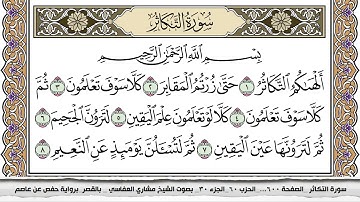 سُورَةُ التَّكَاثُرِ
بِسْمِ اللَّهِ الرَّحْمَٰنِ الرَّحِيمِ
أَلْهَاكُمُ التَّكَاثُرُ ١ حَتَّىٰ زُرْتُمُ الْمَقَابِرَ ٢ كَلَّا سَوْفَ تَعْلَمُونَ ٣ ثُمَّ
كَلَّا سَوْفَ تَعْلَمُونَ ٤ كَلَّا لَوْ تَعْلَمُونَ عِلْمَ الْيَقِينِ ٥ لَتَرَوُنَّ الْجَحِيمَ ٦
ثُمَّ لَتَرَوُنَّهَا عَيْنَ الْيَقِينِ ٧ ثُمَّ لَتُسْأَلُنَّ يَوْمَئِذٍ عَنِ النَّعِيمِ ٨
سورة التكاثر الصفحة ٦٠٠... الحزب ٦٠ الجزء ٣٠ بصوت الشيخ مشاري العفاسي بالقصر برواية حفص عن عاصم